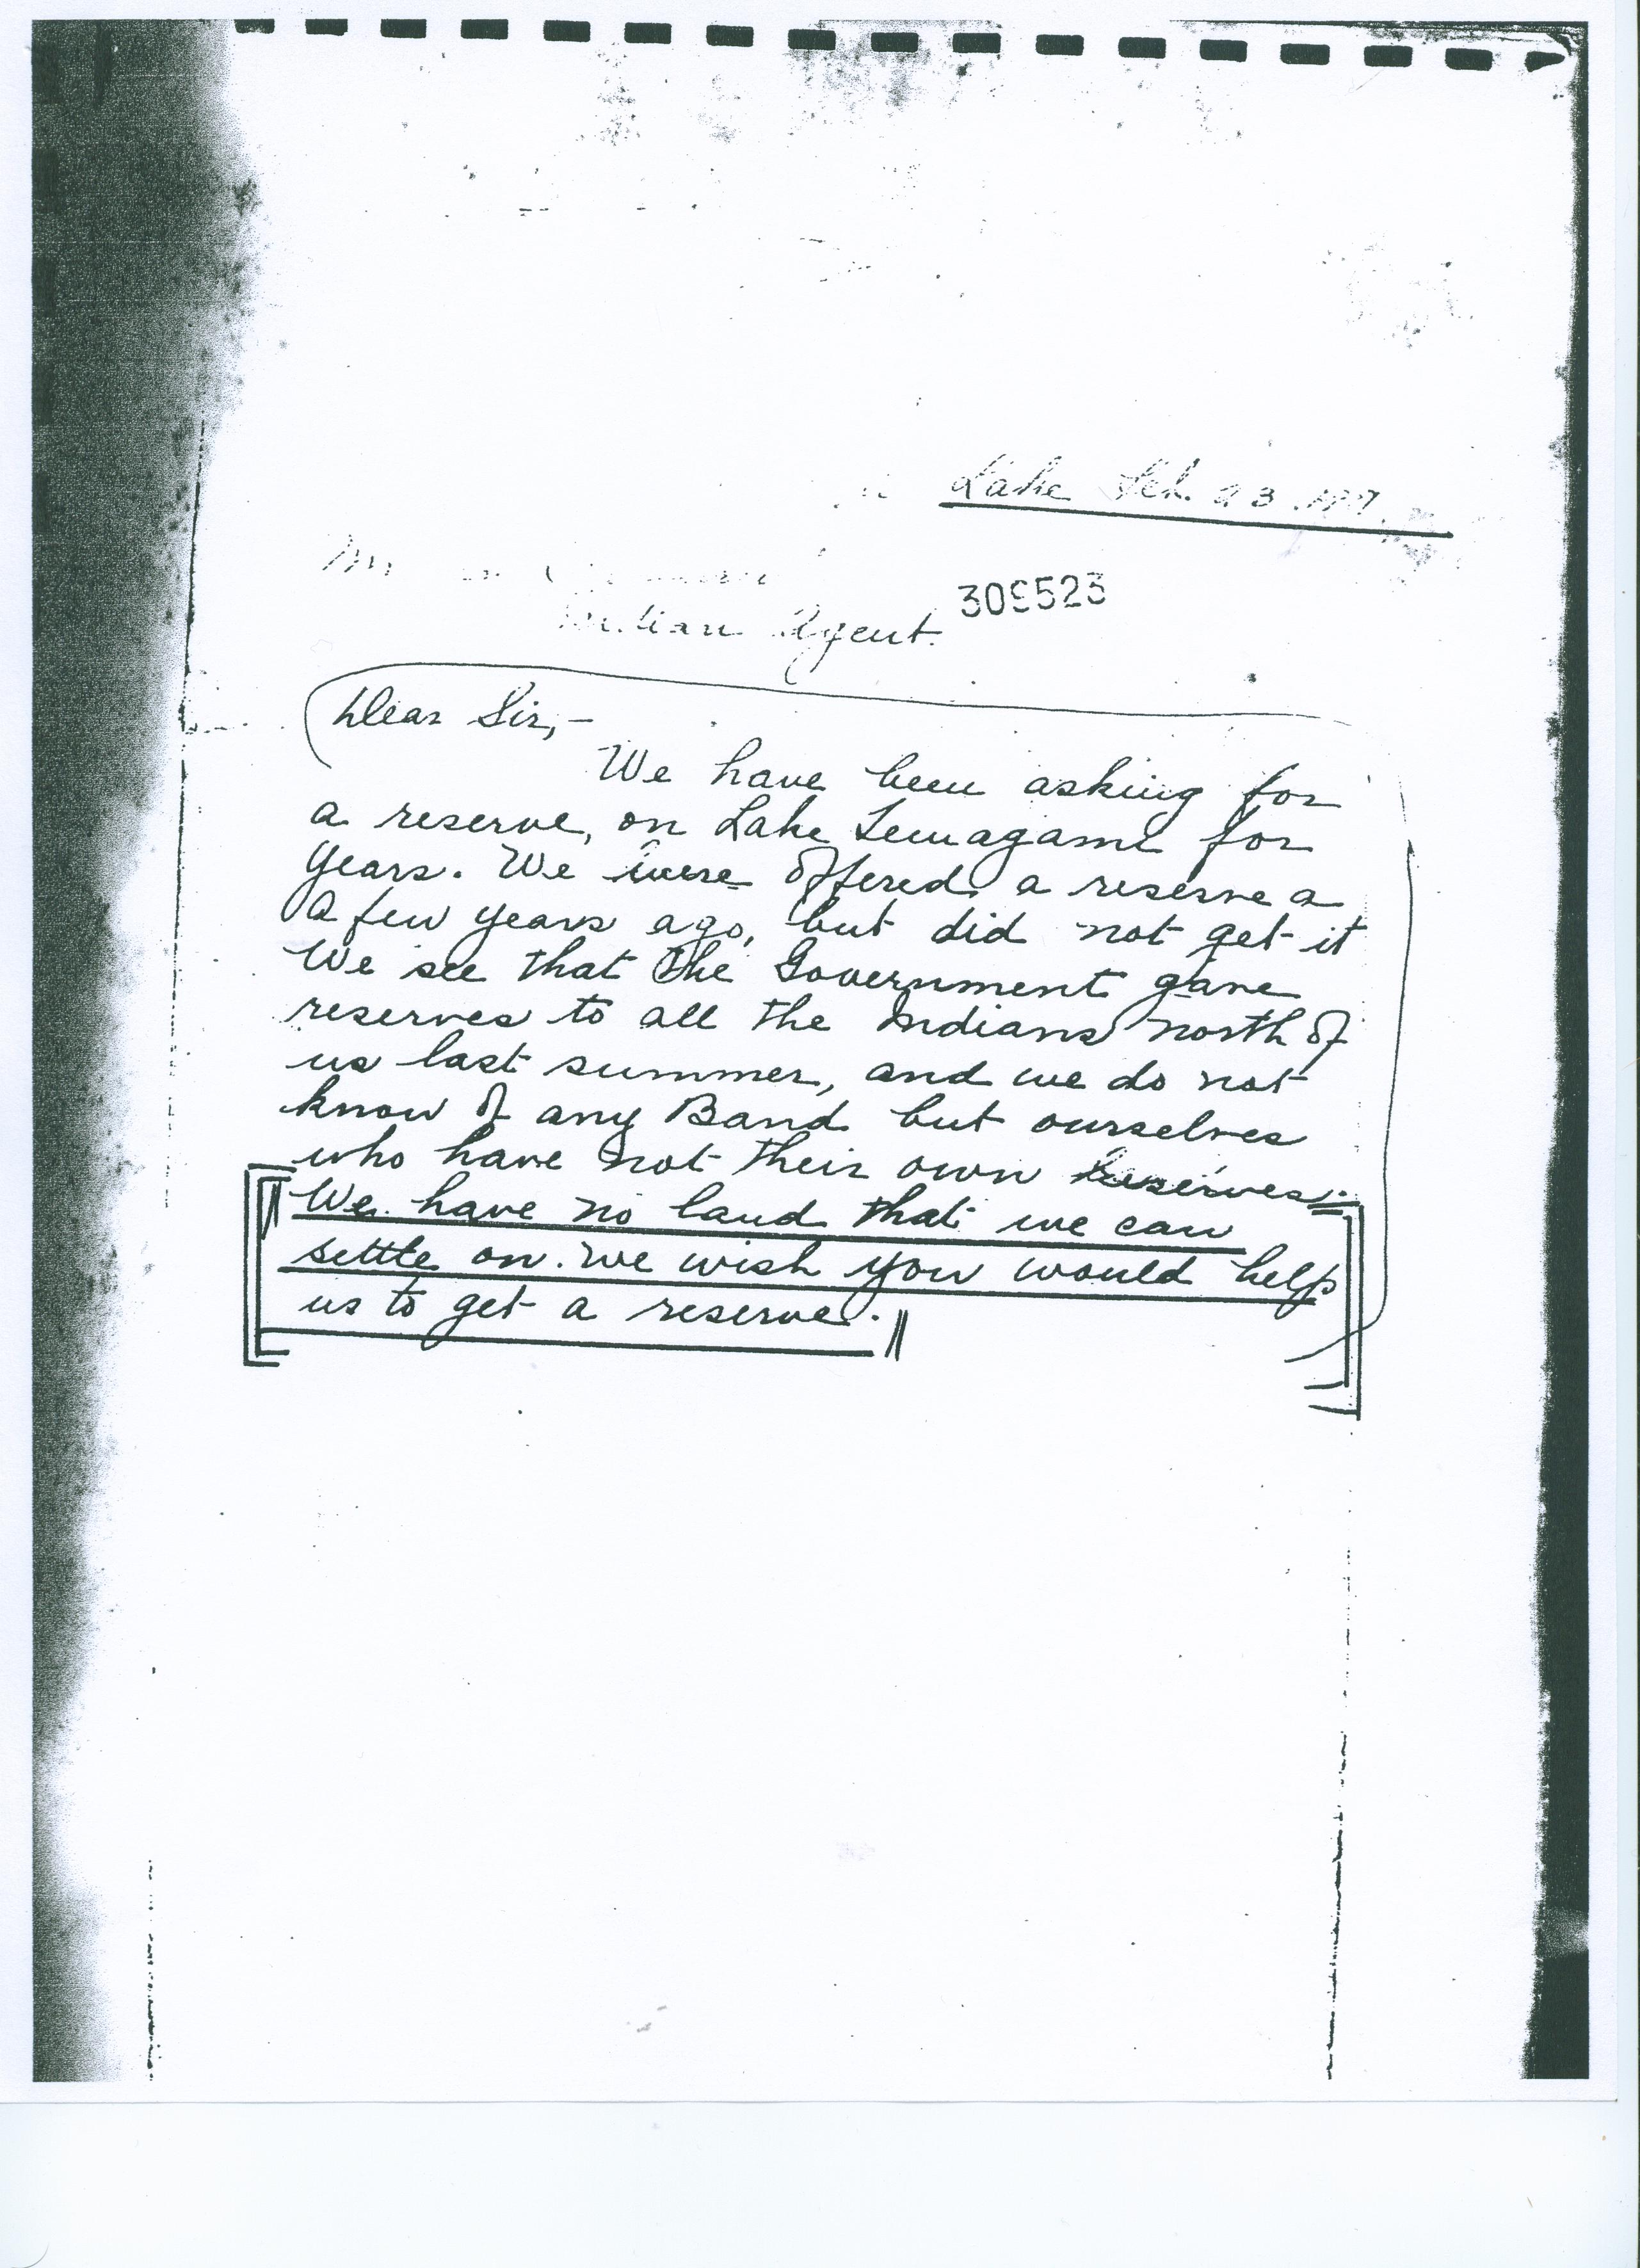 Lake Feb. 23.
309523
Indian Agent.
Dear Sir,-
We have been asking for
a reserve, on Lake Temagami for
years. We were offered a reserve a
a few years ago, but did not get it
We see that the Government gave
reserves to all the Indians north of
us last summer, and we do not
know of any Band but ourselves
who have not their own Reserves.
We have no land that we can
settle on. We wish you would help
us to get a reserve.